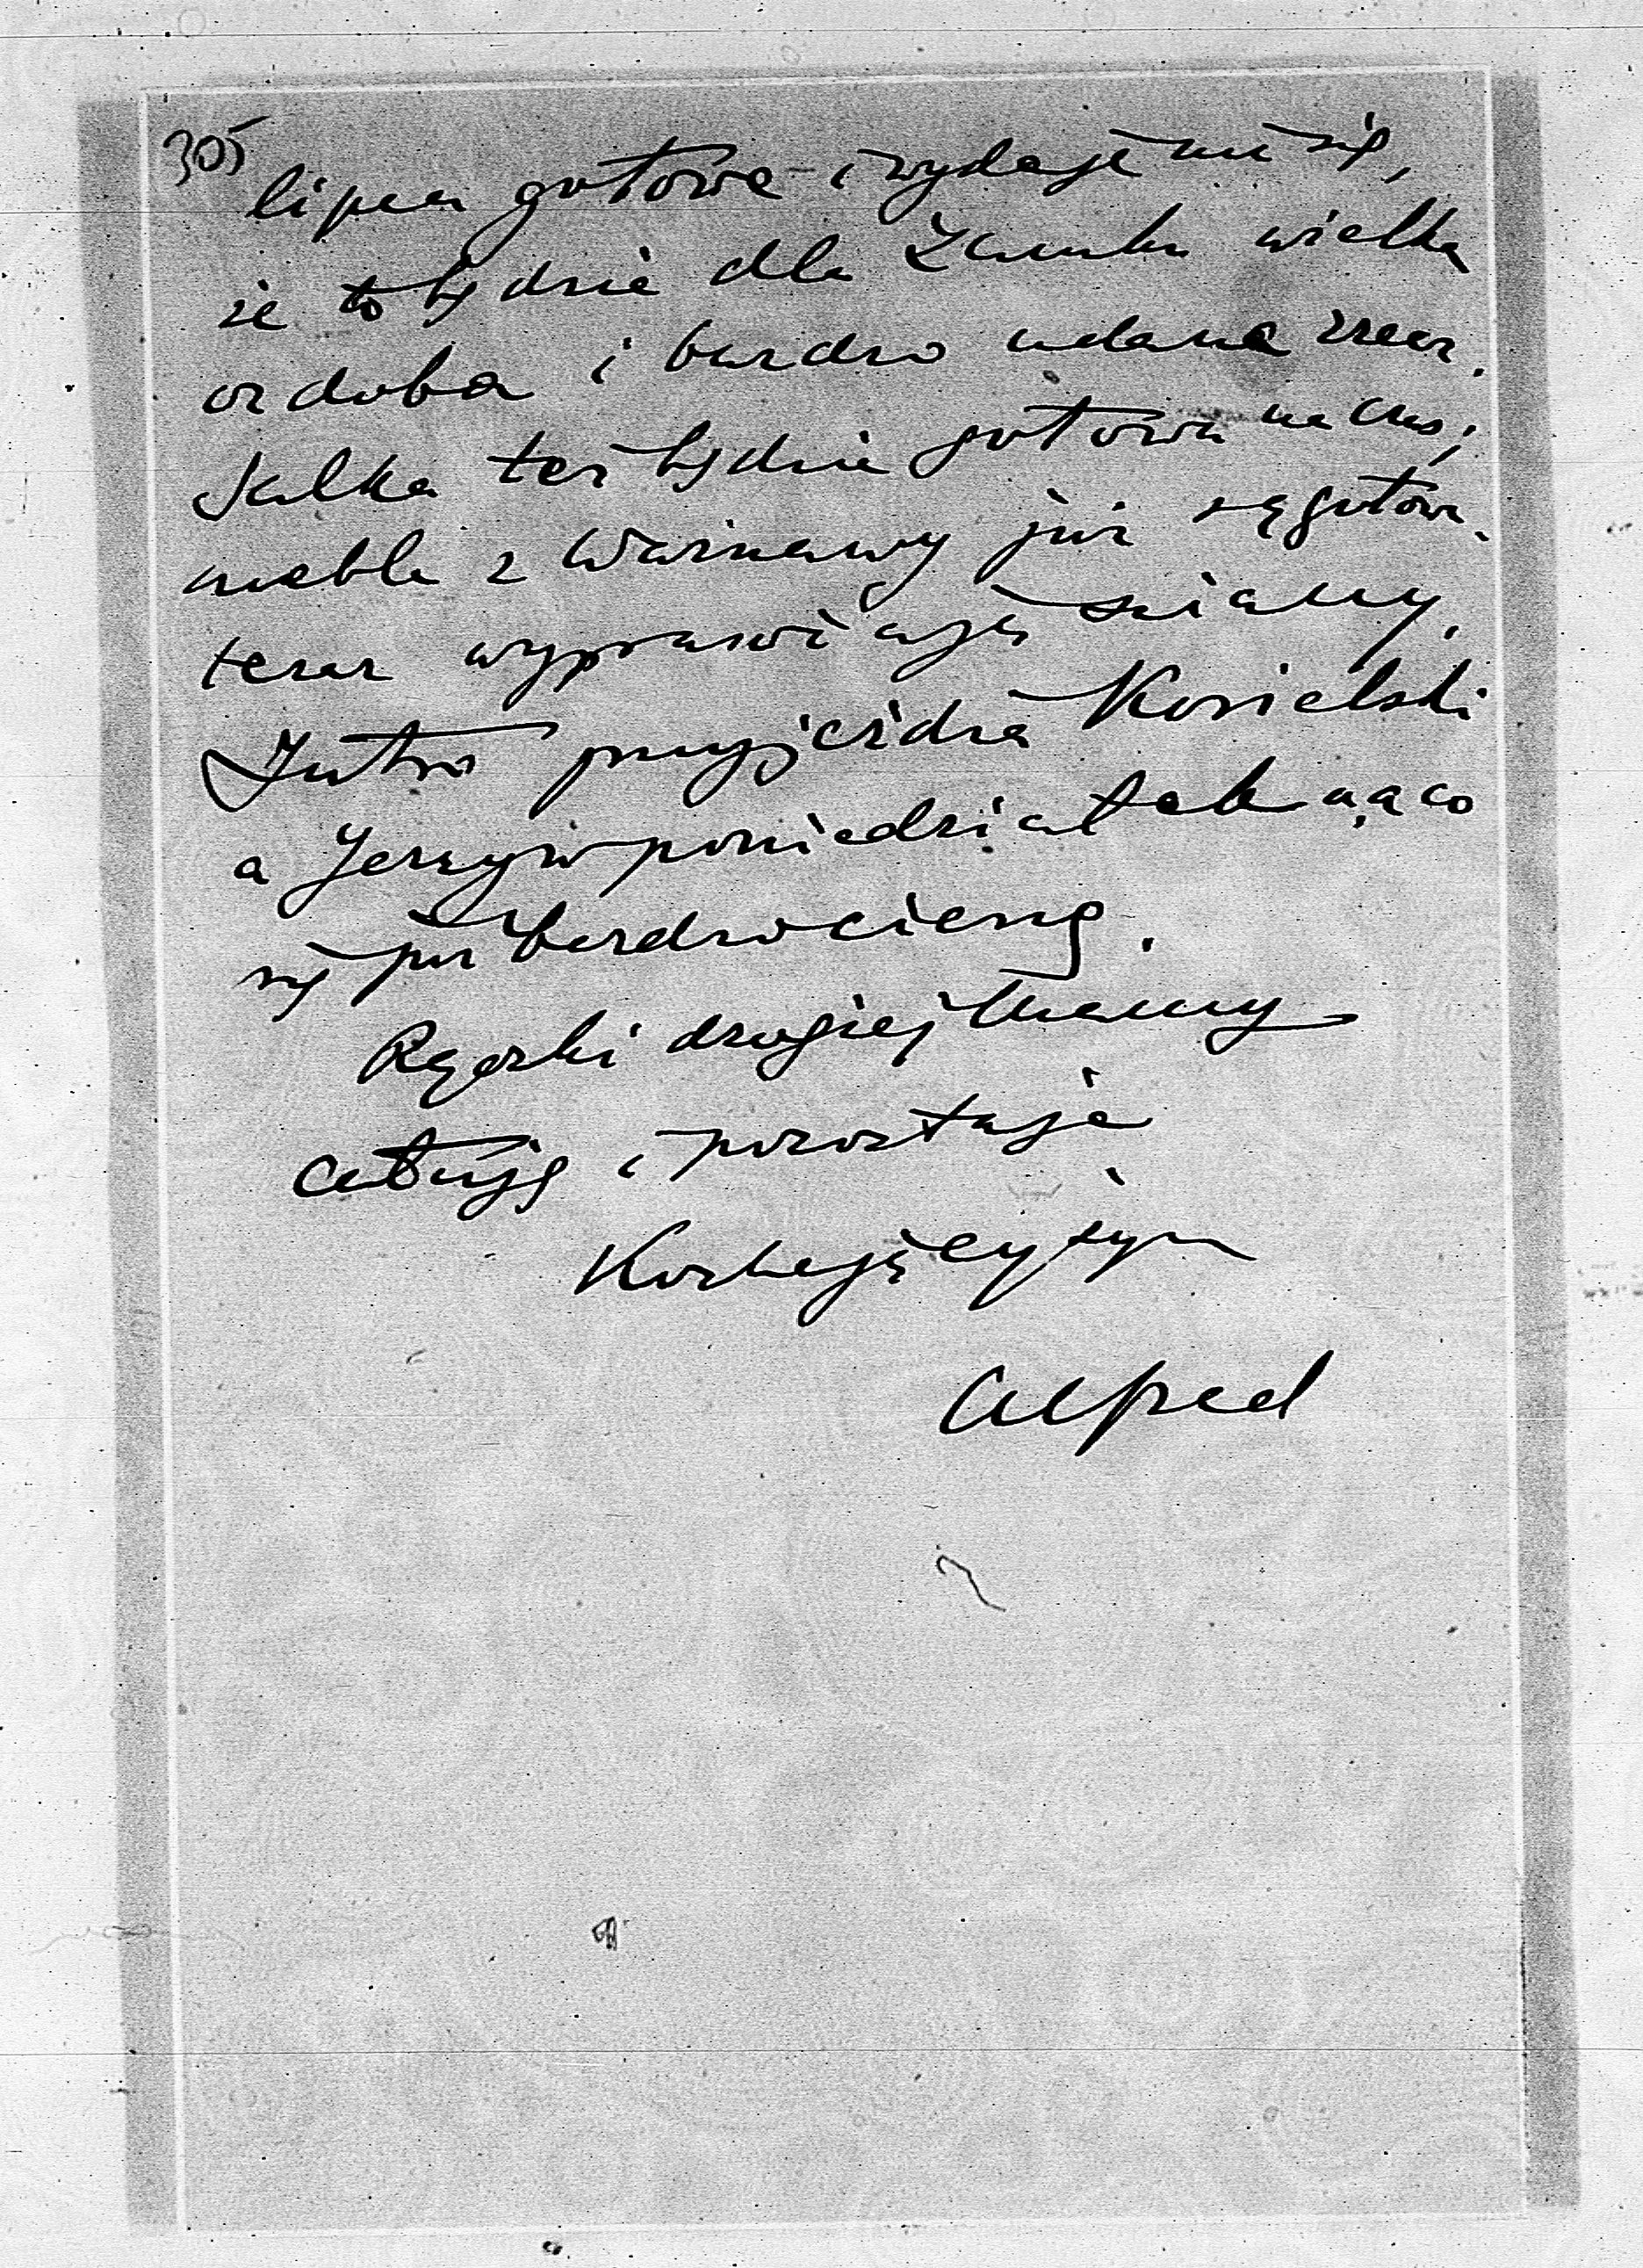 305
lipca gotowe i wydaje mi się,
że to będzie dla Zamku wielka
ozdoba i bardzo udana rzecz.
Salka też będzie gotowa na czas;
meble z Warszawy już są gotowe.
teraz wyprawiają ściany.
Jutro przyjeżdża Kosielski
a Jerzy w poniedziałek na co
się już bardzo cieszę.
Rączki drogiej Mamy
całuję i pozostaję
Kochający syn
Alfred